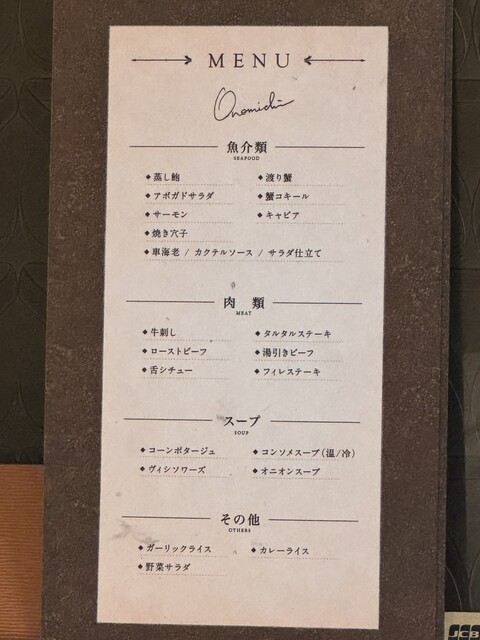 MENU
Onomichi
魚介類
SEAFOOD
◆蒸し鮑 ◆渡り蟹
◆アボガドサラダ ◆蟹コキール
◆サーモン ◆キャビア
◆焼き穴子
◆車海老 / カクテルソース / サラダ仕立て
肉 類
MEAT
◆牛刺し ◆タルタルステーキ
◆ローストビーフ ◆湯引きビーフ
◆舌シチュー ◆フィレステーキ
スープ
SOUP
◆コーンポタージュ ◆コンソメスープ(温/冷)
◆ヴィシソワーズ ◆オニオンスープ
その他
OTHERS
◆ガーリックライス ◆カレーライス
◆野菜サラダ
JCB